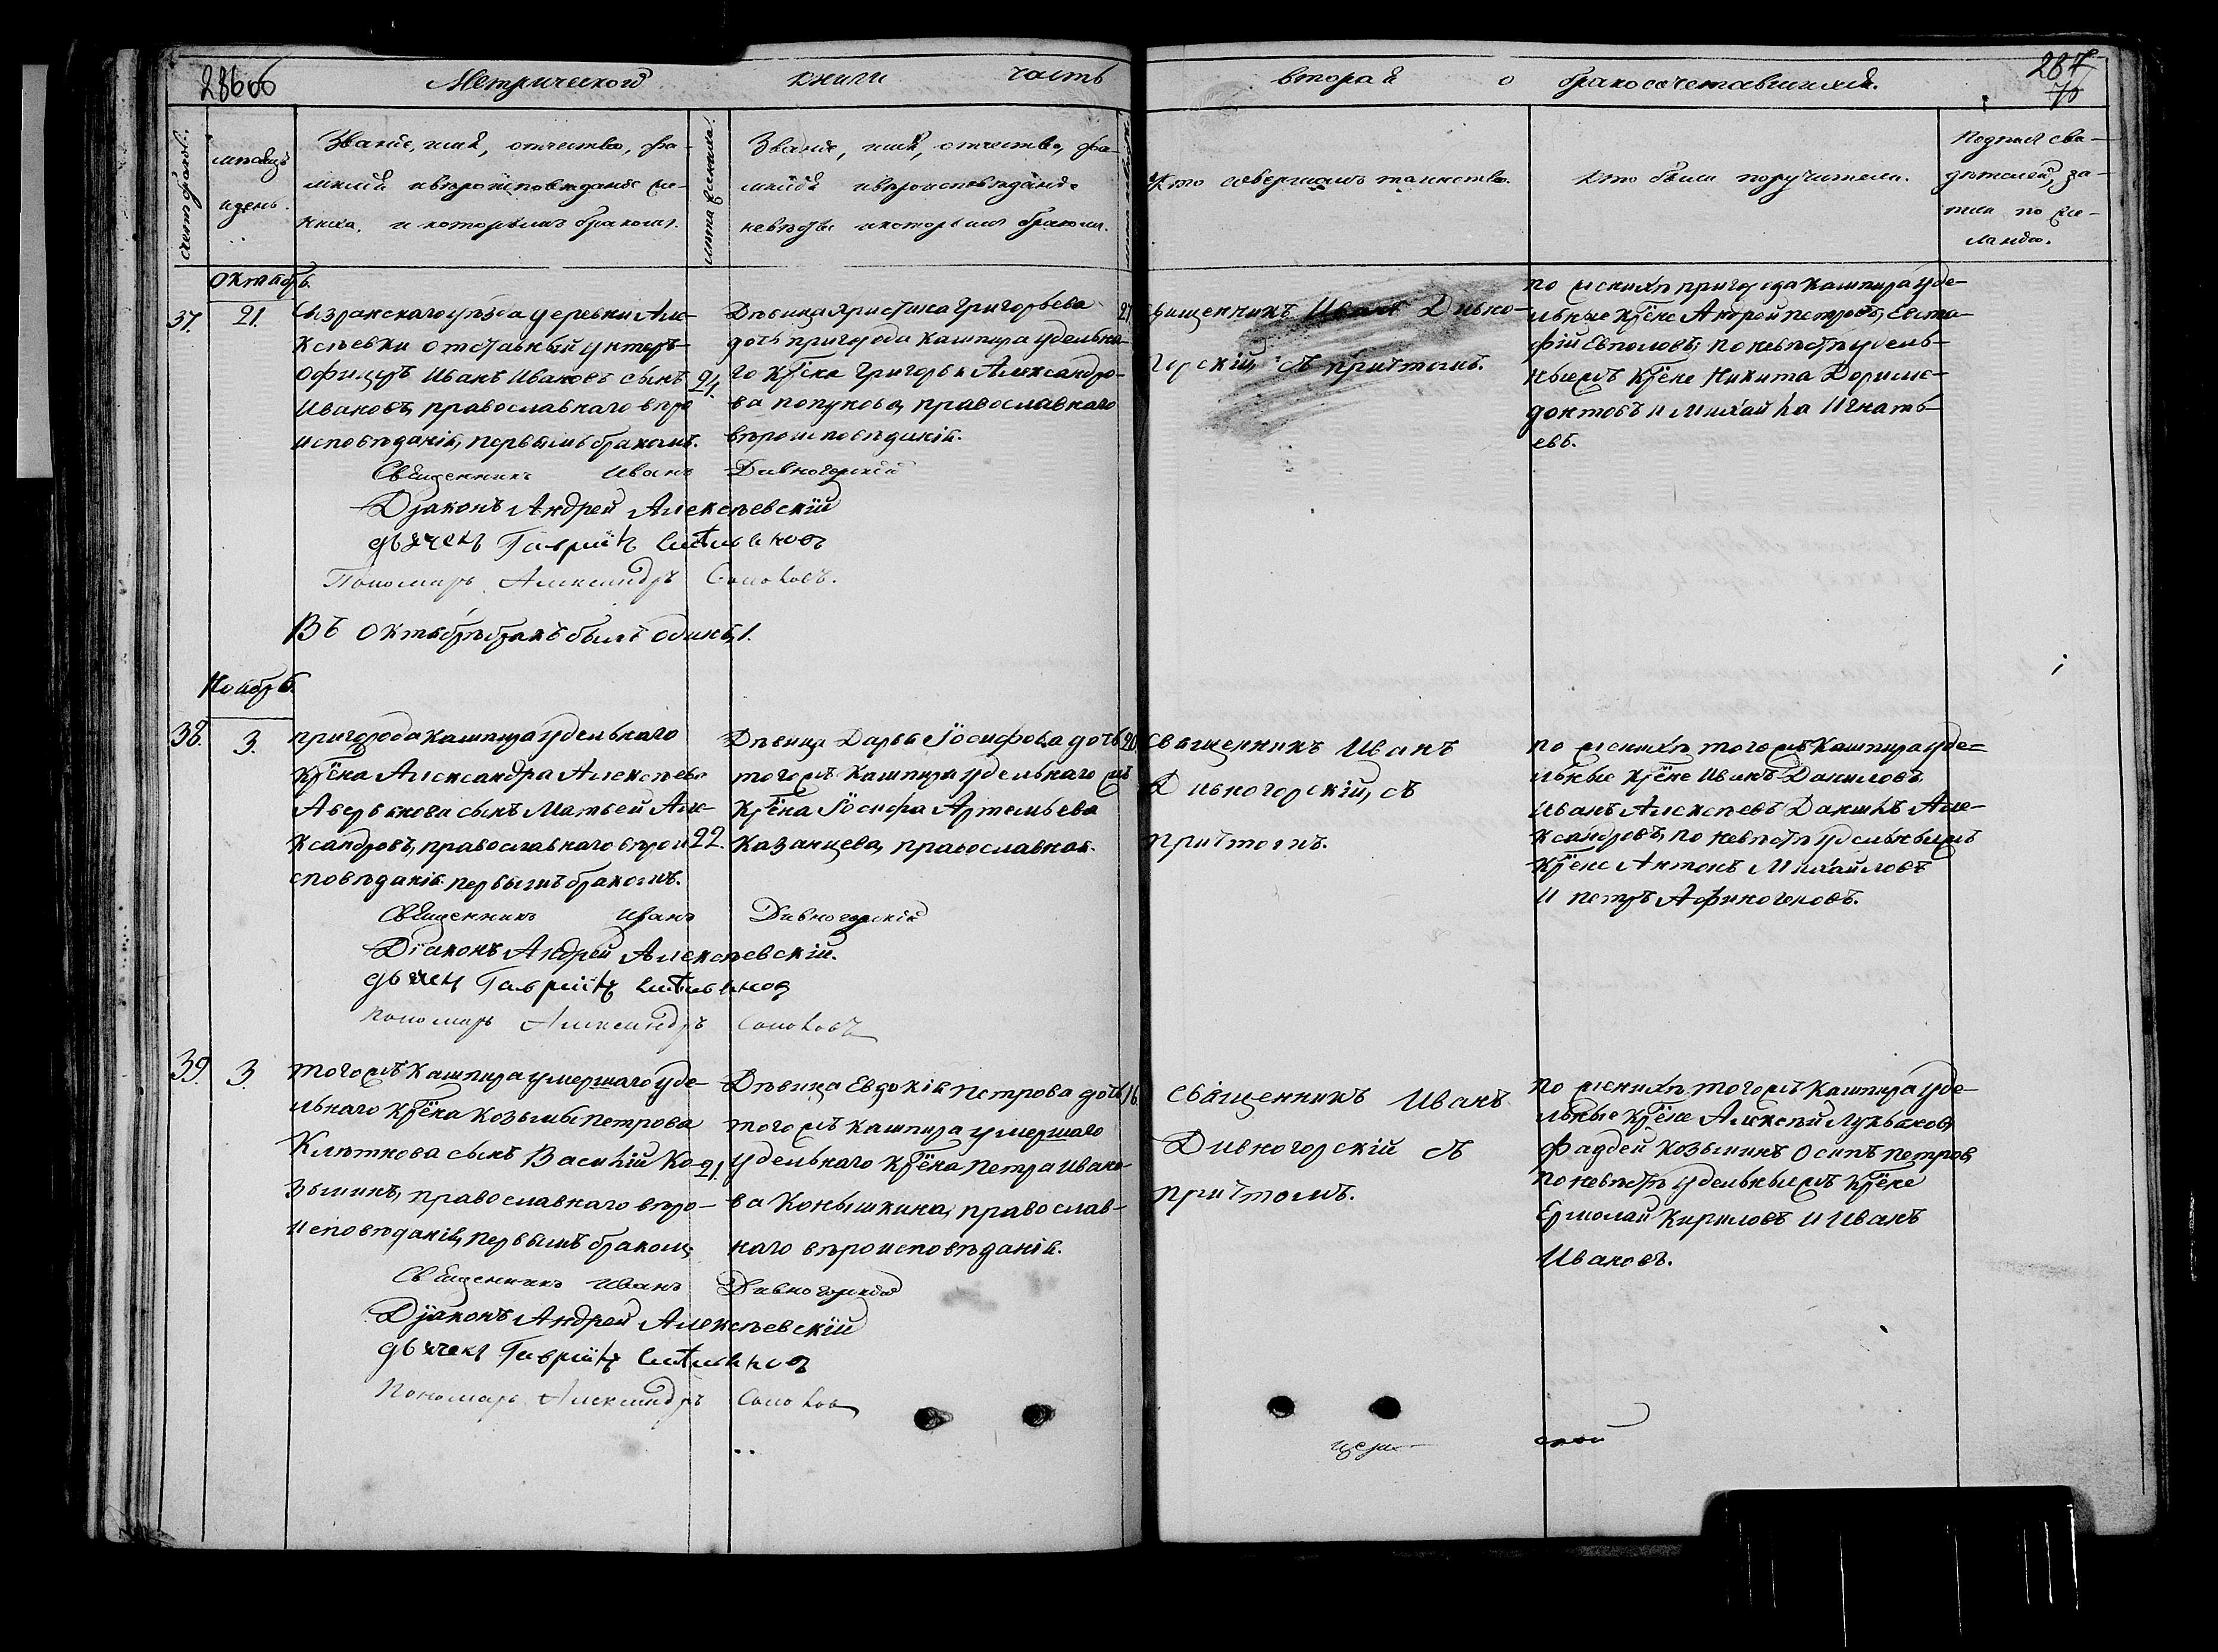 286об
Метрической книги часть
вторая о бракосочетавшихся.
287
Счетъ браковъ.
мѣсяцъ
и день.
Званіе, имя, отчество, фа-
милія и вѣроисповѣданіе же-
ниха, и которымъ бракомъ.
лѣта жениха.
Званіе, имя, отчество, фа-
милія и вѣроисповѣданіе
невѣсты и которымъ бракомъ.
Кто совершалъ таинство.
Кто были поручители.
Подписи сви-
дѣтелей, за-
писи по же-
ланію.
Октябрь.
37.
21.
Сызранскаго уѣзда деревни Але-
ксѣевки отставный унтеръ-
офицеръ Иванъ Ивановъ сынъ
Ивановъ, православнаго вѣро
исповѣданія, первымъ бракомъ.
24.
Дѣвица Христина Григорьева
дочь пригорода Кашпира удѣльна-
го кр̃ена Григорья Александро-
ва Попунова, православнаго
вѣроисповѣданія.
21.
Священникъ Иванъ Дивно-
горскій, съ причтомъ.
по женихѣ пригорода Кашпира удѣ-
льные кр̃ене Андрей Петровъ, Евста-
фій Евполовъ, по невѣстѣ удѣль-
ные жъ кр̃ене Никита Дориме-
донтовъ и Михайла Игнать-
евъ.
Священникъ Иванъ Дивногорскій
Діаконъ Андрей Алексѣевскій
дьячекъ Гаврійлъ
Пономарь Александръ Соколовъ.
Въ Октябрѣ бракъ былъ одинъ, 1.
Ноябрь.
38.
3.
пригорода Кашпира удѣльнаго
кр̃ена Александра Алексѣева
Аверьянова сынъ Матвей Але-
ксандровъ, православнаго вѣрои
сповѣданія. первымъ бракомъ.
22.
Дѣвица Дарья Іосифова дочь
тогожъ Кашпира удѣльнаго жъ
кр̃ена Іосифа Артемьева
Казанцева, православная.
20.
Священникъ Иванъ
Дивногорскій, съ
причтомъ.
по женихѣ тогожъ Кашпира удѣ-
льные кр̃ене Иванъ Даниловъ
Иванъ Алексѣевъ Данилъ Але-
ксандровъ, по невѣстѣ удѣльные жъ
кр̃ене Антонъ Михайловъ
и Петръ Афиногеновъ.
Священникъ Иванъ Дивногорскій
Діаконъ Андрей Алексѣевскій.
дьячекъ Гаврійлъ
Пономарь Александръ Соколовъ
39.
3.
тогожъ Кашпира умершаго удѣ-
льнаго кр̃ена Козьмы Петрова
Клѣткова сынъ Василій Ко-
зьминъ, православнаго вѣро-
исповѣданія, первымъ бракомъ
21.
Дѣвица Евдокія Петрова дочь
тогожъ Кашпира умершаго
удѣльнаго кр̃ена Петра Ивано-
ва Конышкина, православ-
наго вѣроисповѣданія.
16.
Священникъ Иванъ
Дивногорскій съ
причтомъ.
по женихѣ тогожъ Кашпира удѣ-
льные кр̃ене Алексѣй Лукьяновъ
Фаддей Козьминъ Осипъ Петровъ
по невѣстѣ удѣльные жъ кр̃ене
Ермолай Кириловъ и Иванъ
Ивановъ.
Священникъ Иванъ Дивногорскій
Діаконъ Андрей Алексѣевскій
дьячекъ Гаврійлъ
Пономарь Александръ Соколовъ